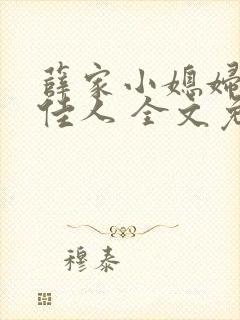 薛家小媳妇
佳人 全文免
穆泰